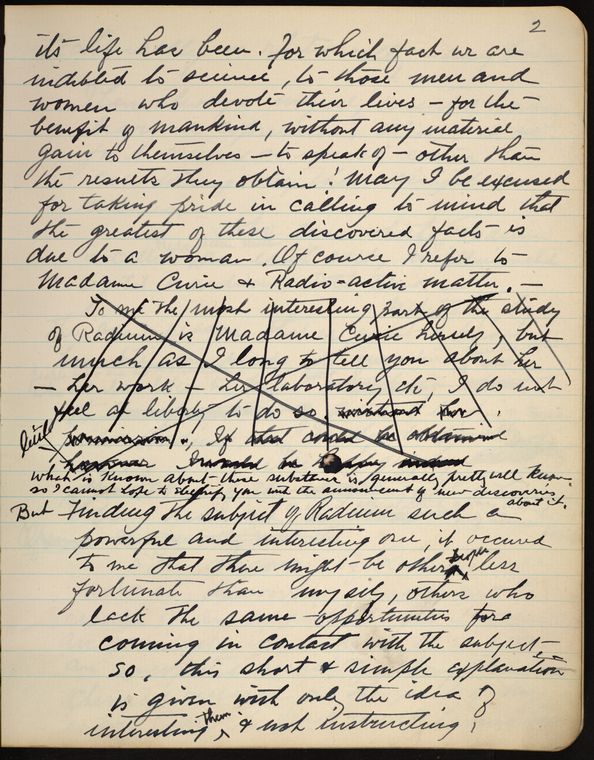 2
its life has been. For which fact we are
indebted to science, to those men and
women who devote their lives – for the
benefit of mankind, without any material
gain to themselves – to speak of – other than
the results they obtain! May I be excused
for taking pride in calling to mind that
the greatest of these discovered facts is
due to a woman. Of course I refer to
Madame Curie & Radio-active matter. –
To me the most interesting part of the study
of Radium is Madame Curie herself, but
much as I long to tell you about her
– her work – her laboratory, etc, I do not
feel at liberty to do so. without her
permission. If that could be obtained
however I would be happy indeed
little
which is known about these substances is generally pretty well known
so I cannot hope to electrify you with the announcement of new discoveries
about it.
But Finding the subject of Radium such a
powerful and interesting one, it occured
to me that there might be other people less
fortunate than myself, others who
lack the same opportunities for a
coming in contact with the subject –
so, this short & simple explanation
is given with only the idea of
interesting them, & not instructing,